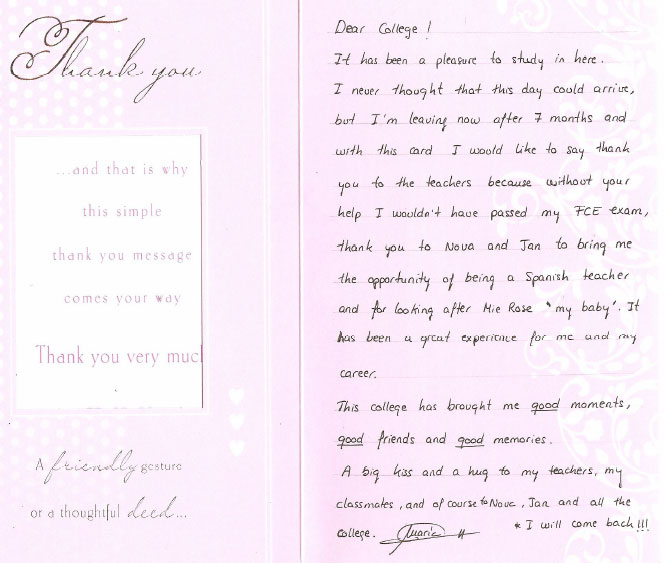 Thank you
...and that is why
this simple
thank you message
comes your way
Thank you very much
A friendly gesture
or a thoughtful deed...
Dear College!
It has been a pleasure to study in here.
I never thought that this day could arrive,
but I'm leaving now after 7 months and
with this card I would like to say thank
you to the teachers because without your
help I wouldn't have passed my FCE exam,
thank you to Nova and Jan to bring me
the opportunity of being a Spanish teacher
and for looking after Mie Rose "my baby". It
has been a great experience for me and my
career.
This college has brought me good moments,
good friends and good memories.
A big kiss and a hug to my teachers, my
classmates, and of course to Nova, Jan and all the
college. Maria * I will come back!!!